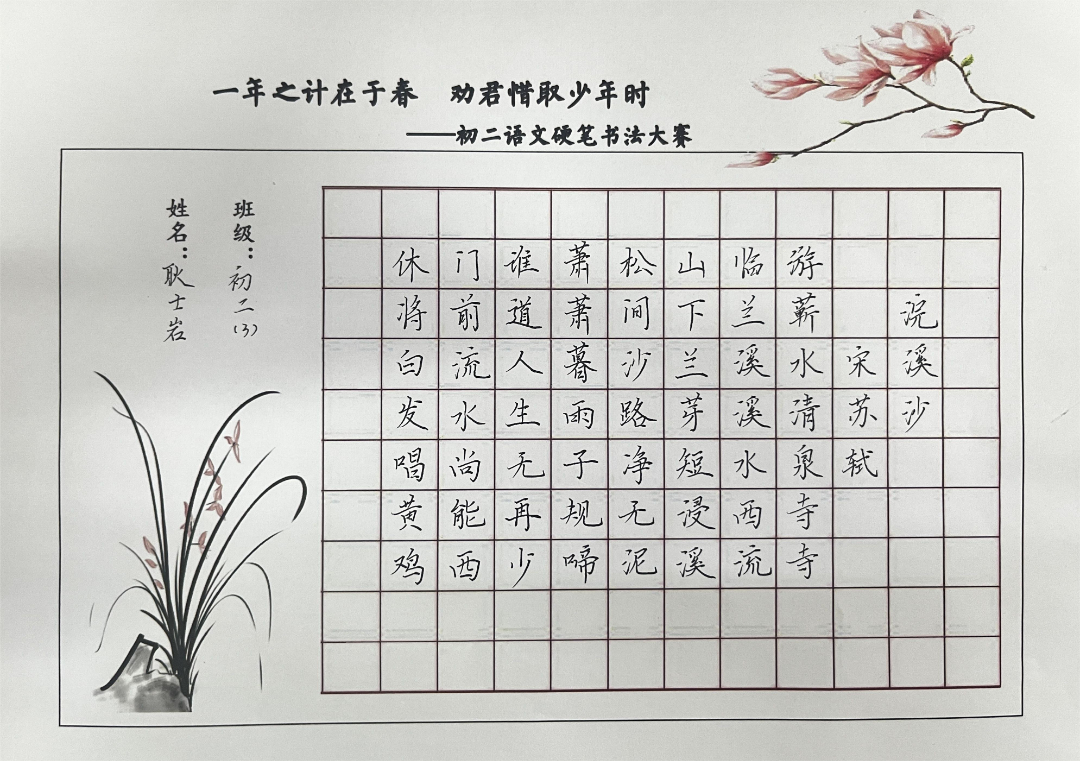 一年之计在于春 劝君惜取少年时
——初二语文硬笔书法大赛
浣溪沙
宋苏轼
游蕲水清泉寺寺
临兰溪溪水西流
山下兰芽短浸溪
松间沙路净无泥
萧萧暮雨子规啼
谁道人生无再少
门前流水尚能西
休将白发唱黄鸡
班级：初二(3)
姓名：耿士岩